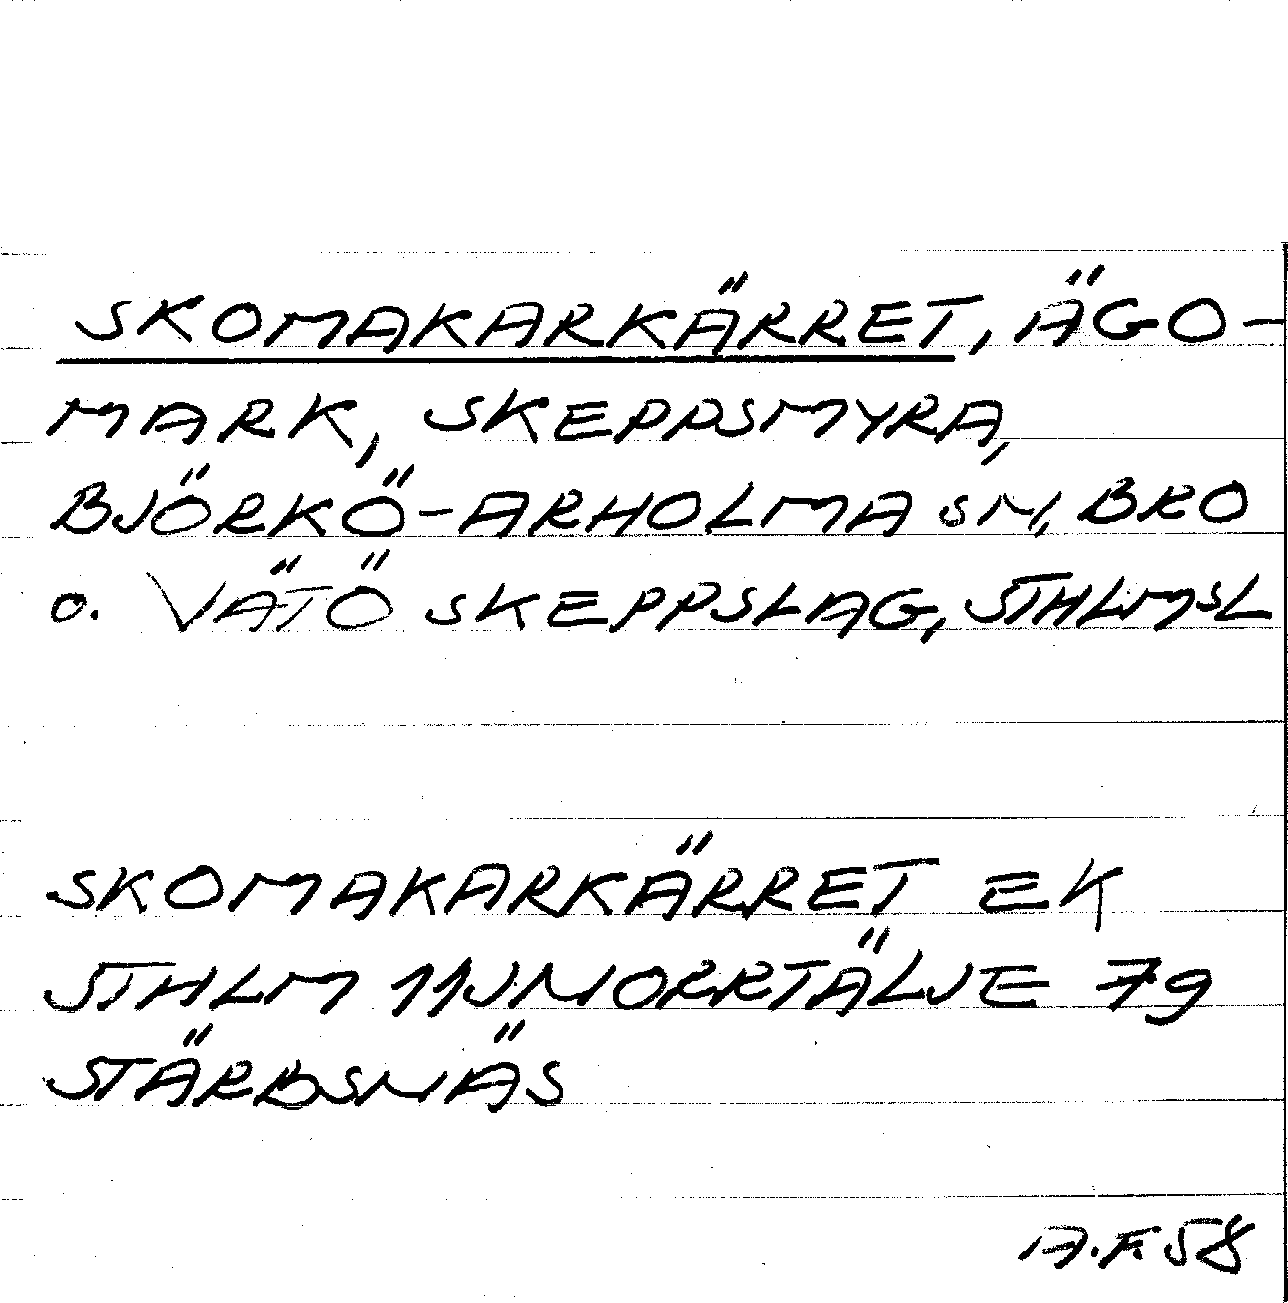 SKOMAKARKÄRRET, ÄGO-
MARK, SKEPPSMYRA,
BJÖRKÖ-ARHOLMA SN, BRO
O. VÄTÖ SKEPPSLAG, STHLMSL
SKOMAKARKÄRRET EK
STHLM 11J NORRTÄLJE 79
STÄRBSNÄS
A.F. 58